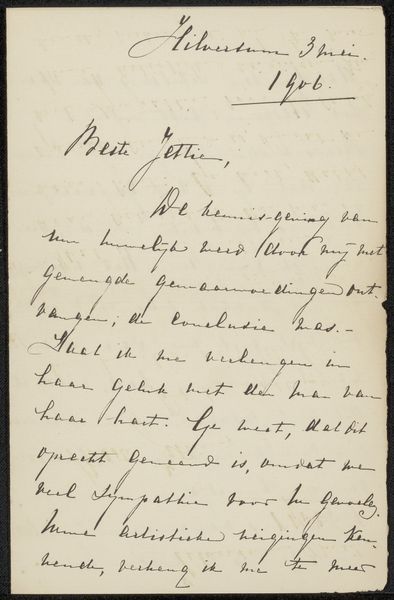 Hilversum 3 mei.
1906.
Beste Jettie,
De kennisgeving van
Uw huwelijk werd door mij met
gemengde gewaarwordingen ont-
vangen; de conclusie was.-
Laat ik me verheugen in
haar geluk met den man van
haar hart. Ge weet, dat dit
oprecht gemeend is, omdat we
veel sympathie voor U gevoelen.
Uwe artistieke neigingen ken-
nende, verheug ik me te meer